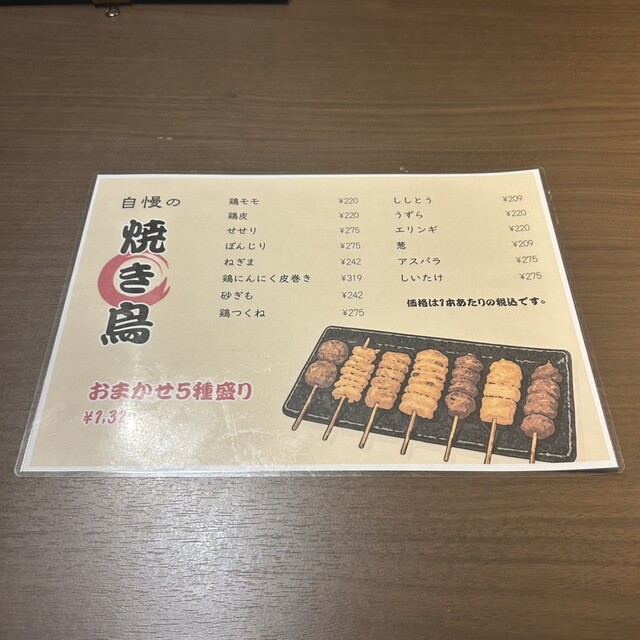 自慢の
焼き鳥
鶏モモ ¥220
鶏皮 ¥220
せせり ¥275
ぼんじり ¥275
ねぎま ¥242
鶏にんにく皮巻き ¥319
砂ぎも ¥242
鶏つくね ¥275
ししとう ¥209
うずら ¥220
エリンギ ¥220
葱 ¥209
アスパラ ¥275
しいたけ ¥275
価格は1本あたりの税込です。
おまかせ5種盛り